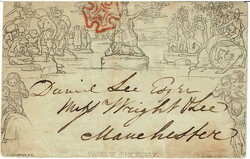 Daniel Lee Esqr
Messrs Wright & Lee
Manchester